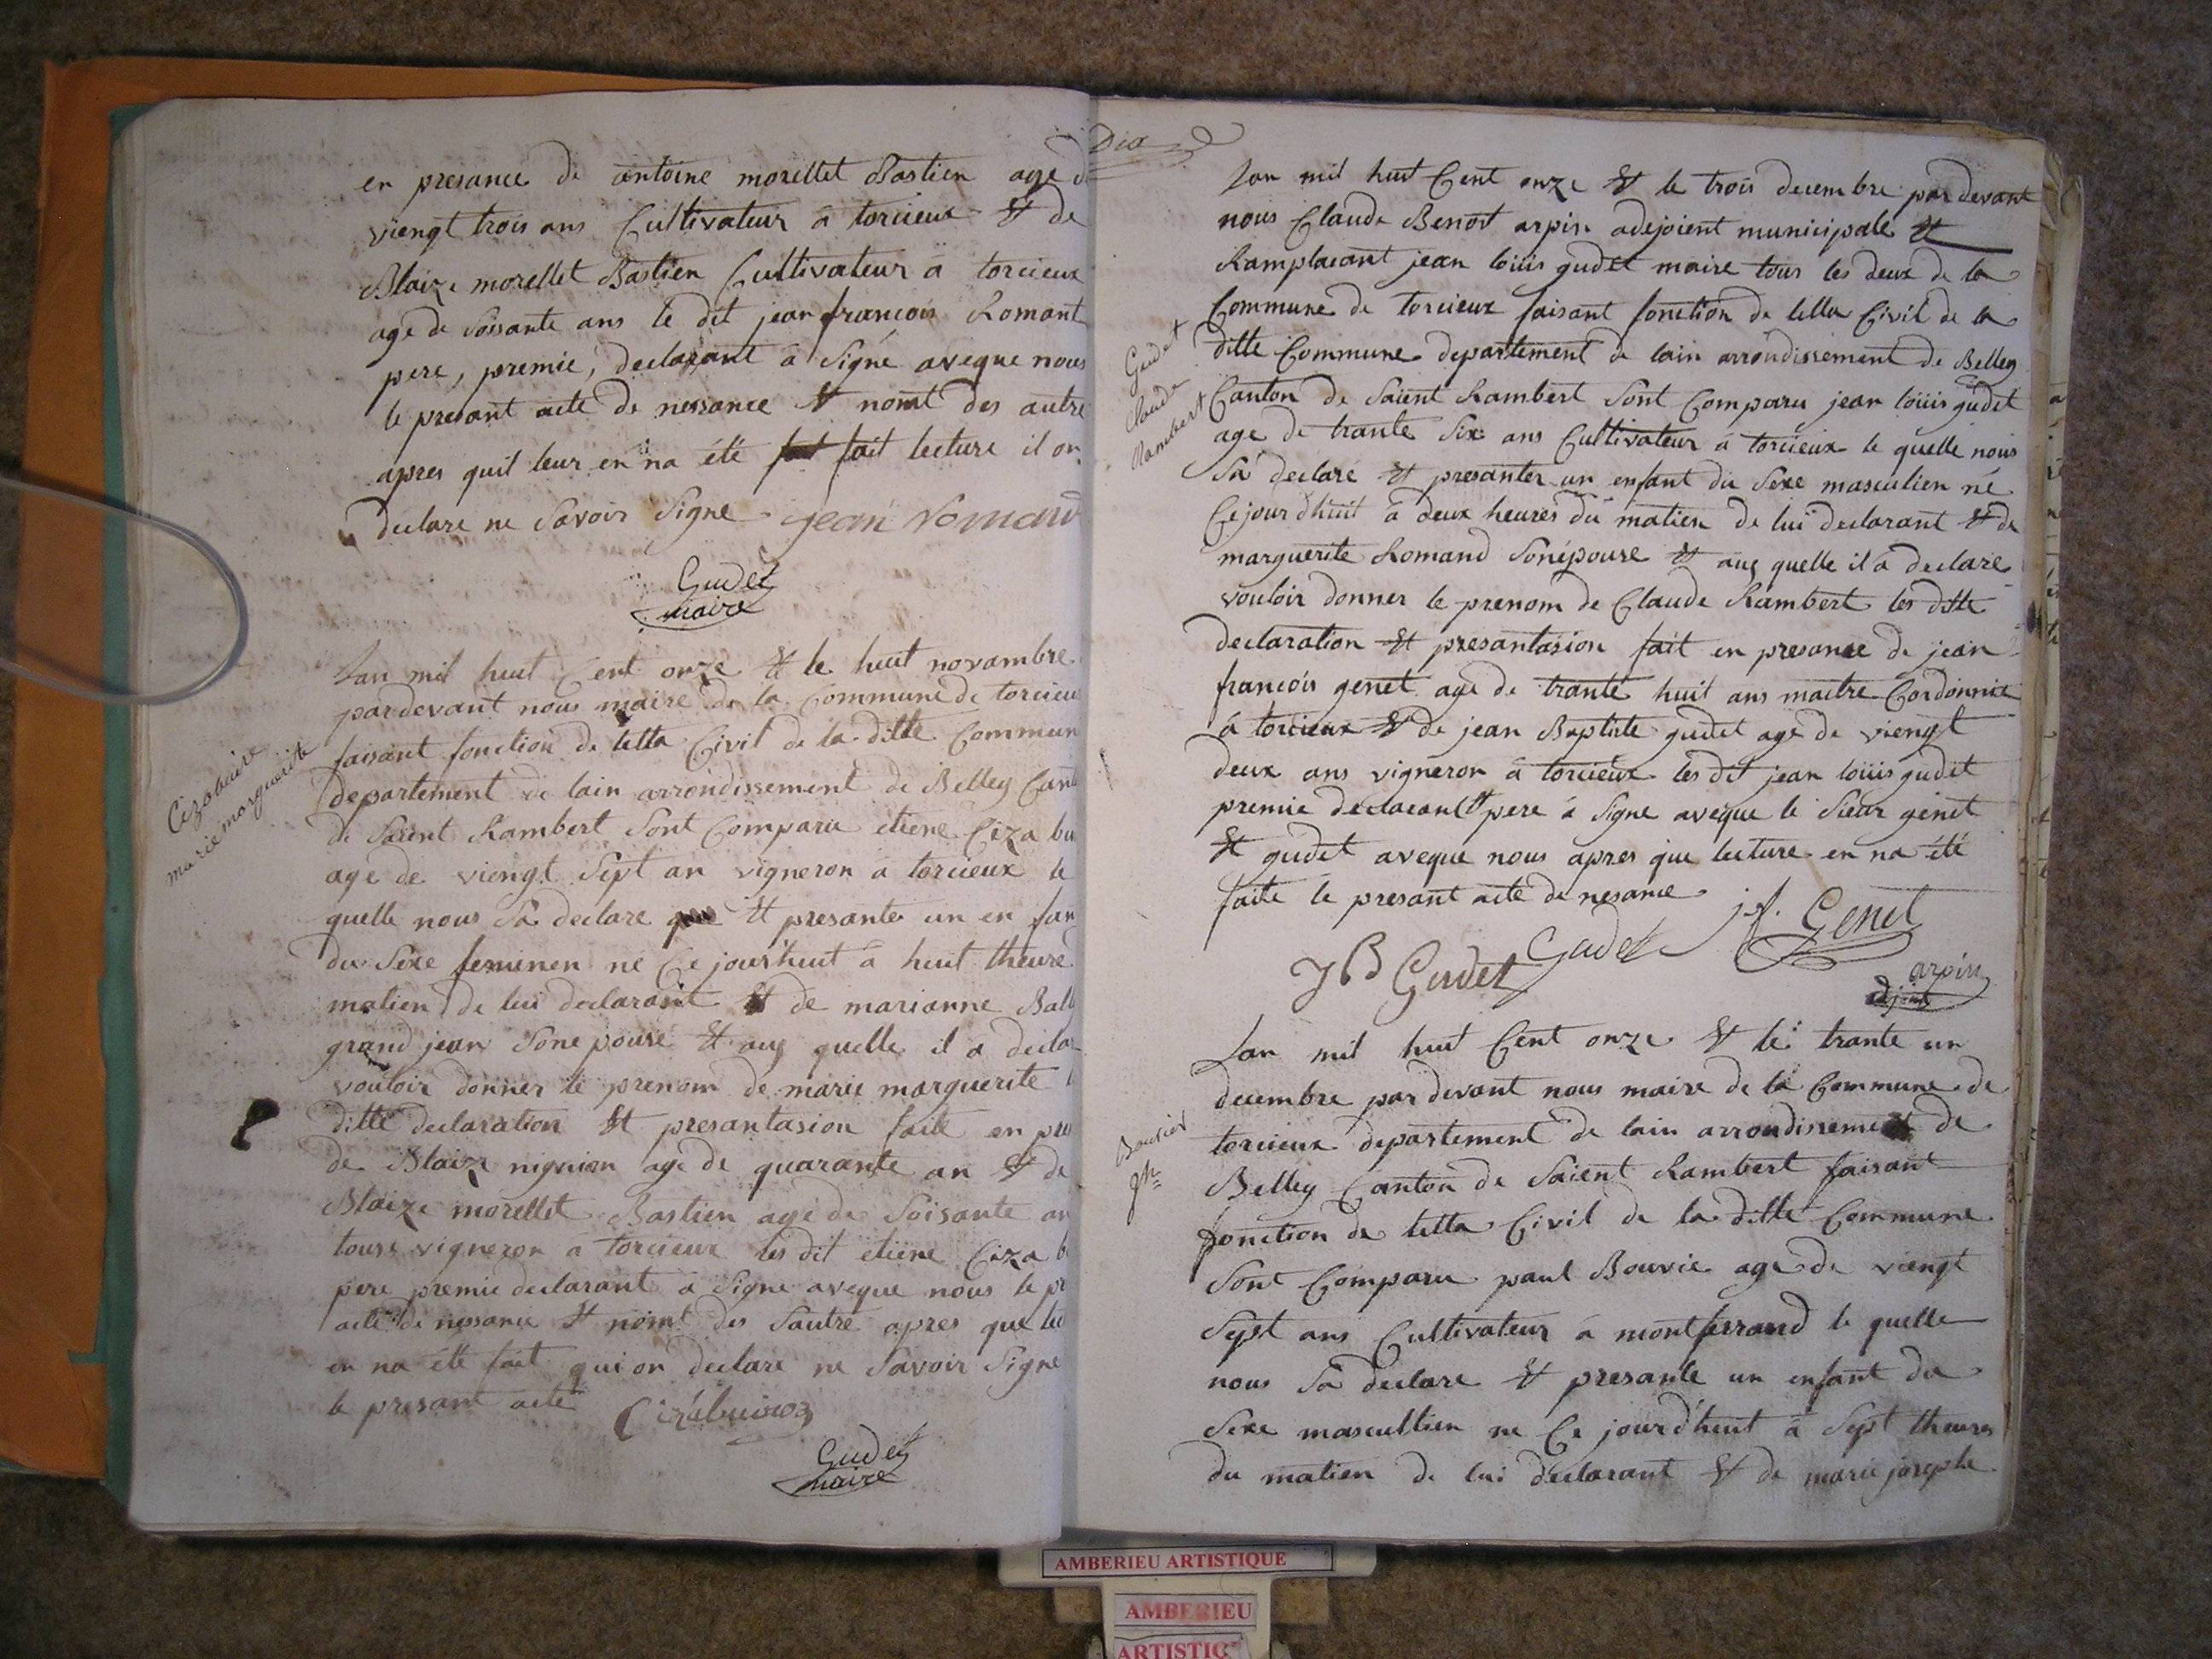 en presance de antoine morellet Bastien age d
viengt trois ans Cultivateur à torcieux et de
Blaize morellet Bastien Cultivateur à torcieux
age de soisante ans le dit jean francois Romant
pere, premié, declarant à Signé aveque nous
le presant acte de nessance et nomt des autre
apres quil leur en na été fait fait lecture il on
declare ne Savoir Signe jean Romand
Gudet
maire
Lan mil huit Cent onze et le huit novambre
pardevant nous maire de la Commune de torcieu
faisant fonction de letta Civil de la ditte Commun
Cizabuire
marie marguerite
departement de lain arrondissement de Belley Cant
de Saient Rambert Sont Comparu etiene Ciza bu
age de viengt Sept an vigneron à torcieux le
quelle nous Sa declare et presante un en fan
du Sexe femenen né Ce jourhuit à huit theure
matien de lui declarant et de marianne Ball
grand jean Sonepouse et auq quelle il a decla
vouloir donner le prenom de marie marguerite l
ditte declaration et presantasion faite en pre
de Blaize nignion age de quarante an et de
Blaize morellet Bastien age de Soisante an
tous vigneron a torcieux les dit etiene Ciza b
pere premie declarant a Signe aveque nous le pr
acte de nessance et nomt des Sautre apres que lec
en na été fait qui on declare ne Savoir Signe
le presant acte
Gudet
maire
Dix
Lan mil huit Cent onze et le trois decembre par devant
nous Claude Benoit arpin adejoient municipale et
Ramplacant jean loüis gudet maire tous les deux de la
Commune de torcieux faisant fonction de letta Civil de la
Gudet
Claude
Rambert
ditte Commune departement de lain arrondissement de Belley
Canton de Saient Rambert Sont Comparu jean loüis gudet
age de trante Six ans Cultivateur à torcieux le quelle nous
Sa declaré et presanter un enfant du Sexe masculien né
Cejourdhuit a deux heures du matien de lui declarant et de
marguerite Romand Sonépouse et auq quelle il a declare
vouloir donner le prenom de Claude Rambert les ditte
declaration et presantasion fait en presance de jean
francois genet age de trante huit ans maitre Cordonnié
à torcieux et de jean Baptiste gudet age de viengt
deux ans vigneron à torcieux les dit jean loüis gudet
premie declarant et pere à Signe aveque le Sieur genet
et gudet aveque nous apres que lecture en na été
faite le presant acte de nesance
J B Gudet Gudet j f. Genet
arpin
adjoint
Lan mil huit Cent onze et le trante un
decembre par devant nous maire de la Commune de
Bouvier
torcieux departement de lain arrondissement de
Belley Canton de Saient Rambert faisant
fonction de letta Civil de la ditte Commune
Sont Comparu paul Bouvie age de viengt
Sept ans Cultivateur a montferrand le quelle
nous Sa declare et presante un enfant du
Sexe mascultien ne Ce jourdhuit à Sept theures
du matien de lui declarant et de marie josephe
AMBERIEU ARTISTIQUE
AMBERIEU
ARTISTIQ